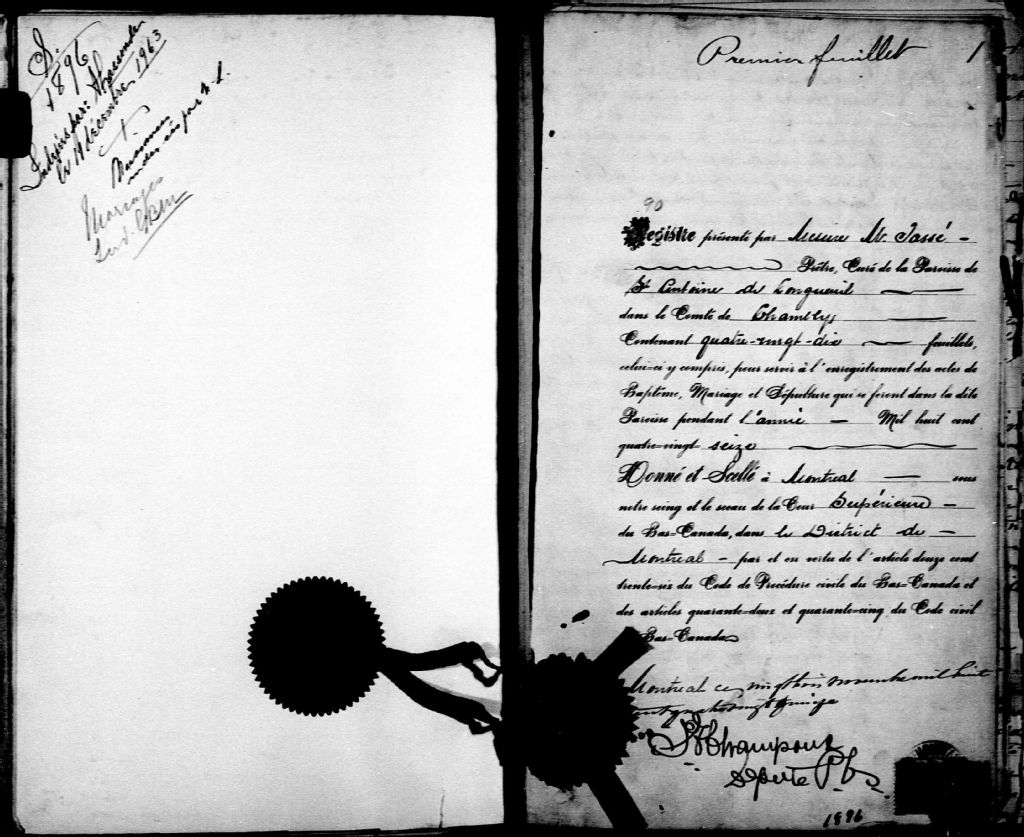 S.
1896
le 11 décembre 1963
Mariages
Premier feuillet 1
90
Registre présenté par Messire M. Tassé
Prêtre, Curé de la Paroisse de
St Antoine de Longueuil
dans le Comté de Chambly
Contenant quatre-vingt-dix feuillets,
celui-ci y compris, pour servir à l'enregistrement des actes de
Baptême, Mariage et Sépulture qui se feront dans la dite
Paroisse pendant l'année Mil huit cent
quatre-vingt seize
Donné et Scellé à Montreal sous
notre seing et le sceau de la Cour Supérieure
du Bas-Canada, dans le District de
Montreal par et en vertu de l'article douze cent
trente-six du Code de Procédure civile du Bas-Canada et
des articles quarante-deux et quarante-cinq du Code civil
Bas-Canada
Montreal ce vingt trois novembre mil huit
cent quatre vingt quinze
Champoux
Depute P.
1896